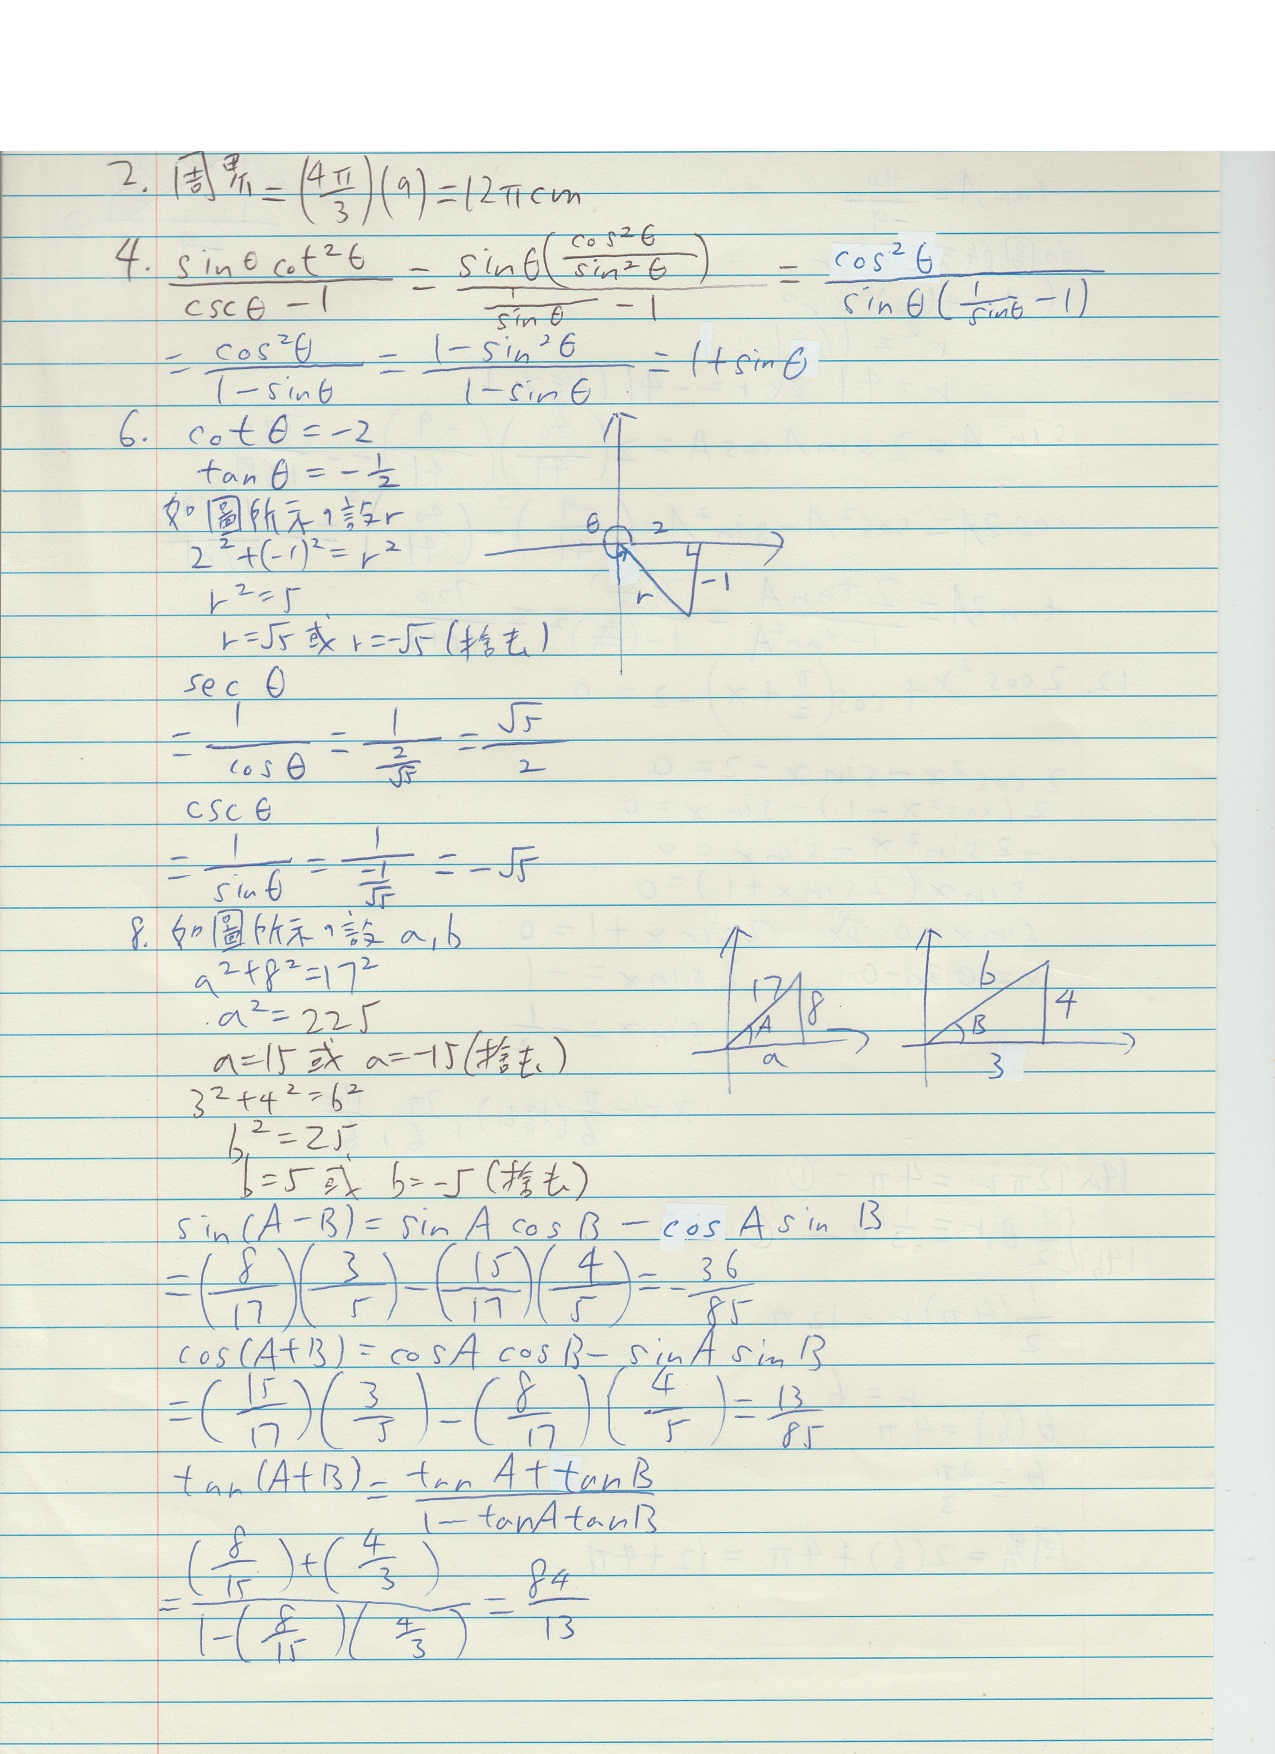 2. 周界 = (4π/3)(9) = 12π cm
4. sin θ cot² θ / (csc θ − 1) = sin θ (cos² θ / sin² θ) / (1/sin θ − 1) = cos² θ / (sin θ (1/sin θ − 1))
= cos² θ / (1 − sin θ) = (1 − sin² θ) / (1 − sin θ) = 1 + sin θ
6. cot θ = −2
tan θ = −1/2
如圖所示，設 r
2² + (−1)² = r²
r² = 5
r = √5 或 r = −√5 (捨去)
θ 2 r −1
sec θ
= 1/cos θ = 1/(2/√5) = √5/2
csc θ
= 1/sin θ = 1/(−1/√5) = −√5
8. 如圖所示，設 a, b
a² + 8² = 17²
a² = 225
a = 15 或 a = −15 (捨去)
17 8 A a
b 4 B 3
3² + 4² = b²
b² = 25
b = 5 或 b = −5 (捨去)
sin(A − B) = sin A cos B − cos A sin B
= (8/17)(3/5) − (15/17)(4/5) = −36/85
cos(A + B) = cos A cos B − sin A sin B
= (15/17)(3/5) − (8/17)(4/5) = 13/85
tan(A + B) = (tan A + tan B) / (1 − tan A tan B)
= ((8/15) + (4/3)) / (1 − (8/15)(4/3)) = 84/13